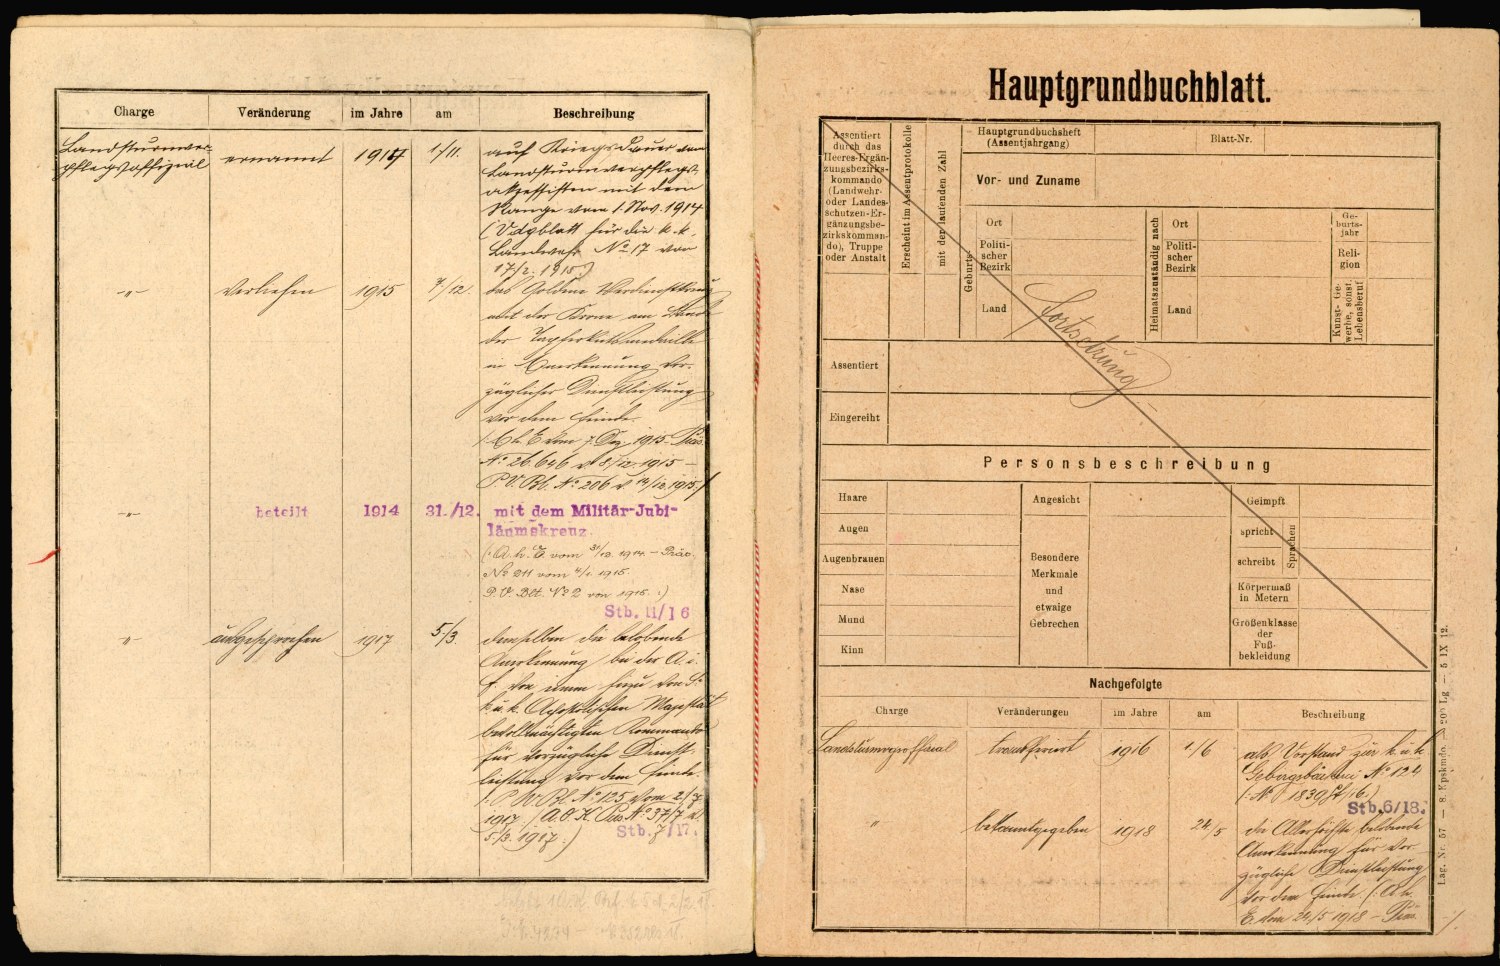 Charge Veränderung im Jahre am Beschreibung
Landsturmver-
pflegsoffizial ernannt 1914 1./11. auf Kriegsdauer vom
Landsturmverpflegs-
akzessisten mit dem
Range vom 1. Nov. 1914
(V.dgblatt für die k.k.
Landwehr No 17 von
17/2. 1915.)
-„- verliehen 1915 7/12. das Goldene Verdienstkreuz
mit der Krone am Bande
der Tapferkeitsmedaille
in Anerkennung vor-
züglicher Dienstleistung
vor dem Feinde.
(: A. h. E. vom 7. Dez. 1915 - Präs.
No 26.646 v. 8/12. 1915 -
P.V.Bl. No 206 v. 1915 :)
-„- beteilt 1914 31./12. mit dem Militär-Jubi-
läumskreuz.
(: A. h. E. vom 31/12. 1914 - Präs.
No 211 vom 1915.
P. V. Blt. No 2 von 1915. :)
Stb. 11/16
„ ausgesprochen 1917 5./3. demselben die belobende
Anerkennung bei der A. i.
F. von einem hiezu von Sr.
k. u. k. Apostolischen Majestät
bevollmächtigten Kommando
für vorzügliche Dienst-
leistung vor dem Feinde.
(: P. V. Bl. No 125 vom 2/7
1917. (A. O. K. Präs No 37/7 v.
5/3. 1917 :)
Stb. 7/17.
Hauptgrundbuchblatt.
Assentiert
durch das
Heeres-Ergän-
zungsbezirks-
kommando
(Landwehr-
oder Landes-
schutzen-Er-
gänzungsbe-
zirkskomman-
do), Truppe
oder Anstalt
Erscheint im Assentprotokolle
mit der laufenden Zahl
Hauptgrundbuchsheft
(Assentjahrgang)
Blatt-Nr.
Vor- und Zuname
Geburts-
Ort
Politi-
scher
Bezirk
Land
Heimatszuständig nach
Ort
Politi-
scher
Bezirk
Land
Ge-
burts-
jahr
Reli-
gion
Kunst- Ge-
werbe, sonst.
Lebensberuf
Fortsetzung
Assentiert
Eingereiht
Personsbeschreibung
Haare
Augen
Augenbrauen
Nase
Mund
Kinn
Angesicht
Besondere
Merkmale
und
etwaige
Gebrechen
Geimpft
spricht
schreibt
Sprachen
Körpermaß
in Metern
Größenklasse
der
Fuß-
bekleidung
Nachgefolgte
Charge Veränderungen im Jahre am Beschreibung
transferiert 1916 1/6 als Vorstand zur k. u. k.
Gebirgsbäckerei No 124
(: No 1839/16 :)
Stb. 6/18.
„ bekanntgegeben 1918 24/5 die Allerhöchste belobende
Anerkennung für vor-
zügliche Dienstleistung
vor dem Feinde. (: A. h.
E. vom 24/5 1918 - Präs.
Lag. Nr. 57 — 8. Epskmdo. Lg — 5 IX 12.